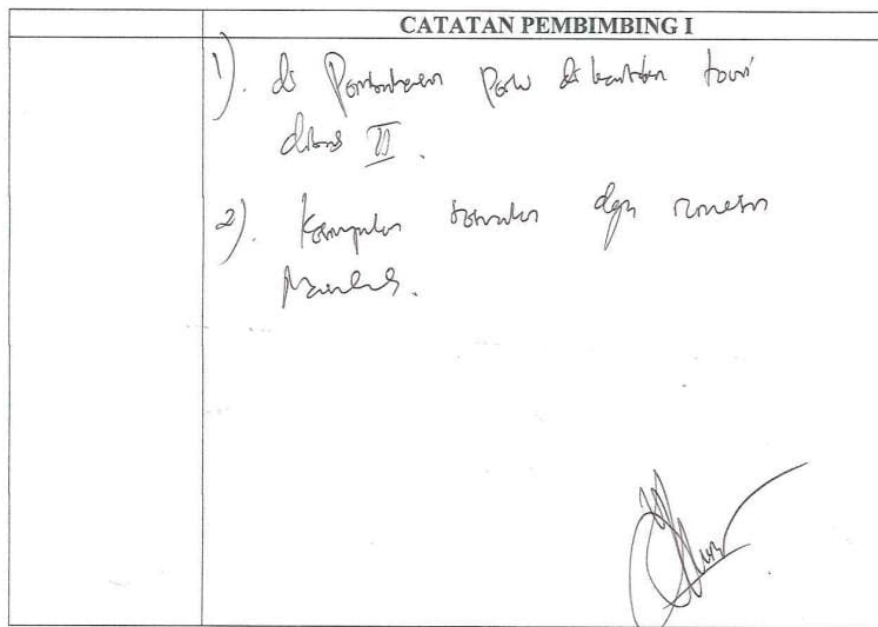 CATATAN PEMBIMBING I
1). di Pembahasan Perlu di kaitkan teori
II.
2). Kesimpulan sesuaikan dgn rumusan
Masalah.